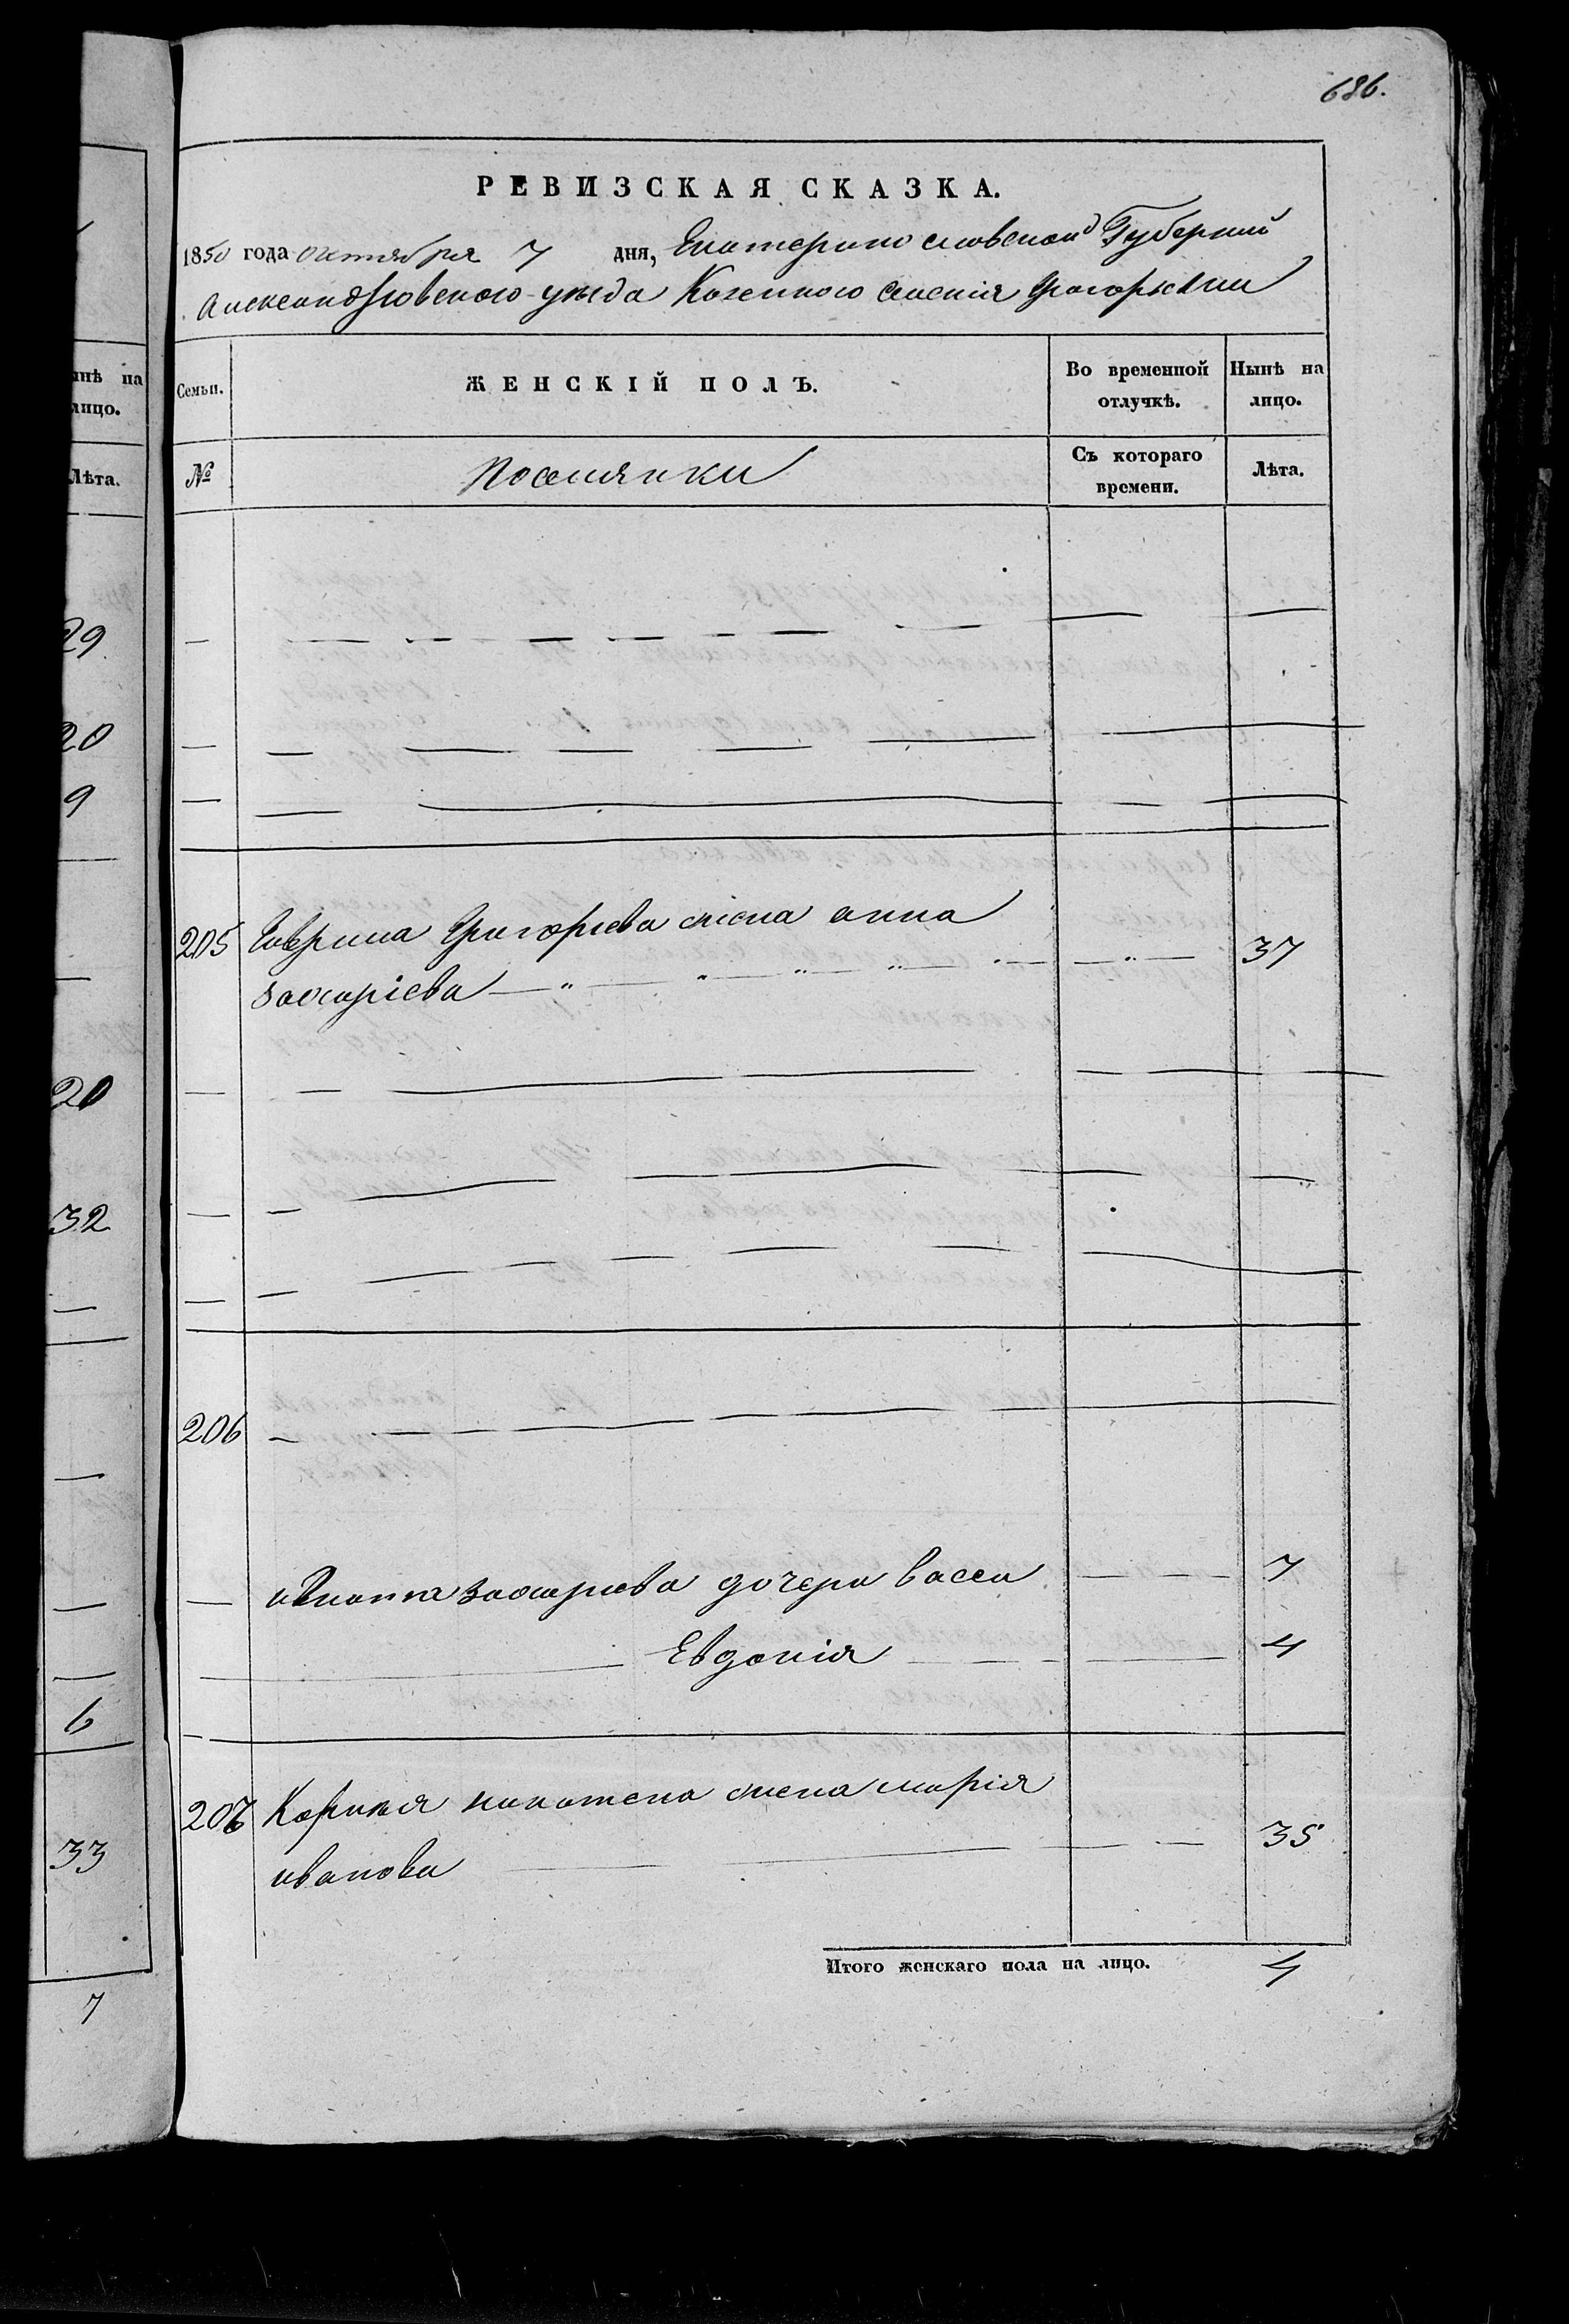 686.
РЕВИЗСКАЯ СКАЗКА.
1850 года октября 7 дня, Екатеринославской Губернии
Александровского уезда Козенного селения Григорьевки
Семьи.
ЖЕНСКІЙ ПОЛЪ.
Во временной отлучкѣ.
Нынѣ на лицо.
№
Поселянки
Съ котораго времени.
Лѣта.
205 Гаврила Григорьева жена анна 37
захаріева
206
захарьева дочери васса 7
Евдокія 4
207 Корнея жена марія
иванова 35
Итого женскаго пола на лицо. 4
нѣ на
лицо.
Лѣта.
29
20
9
20
32
6
33
7